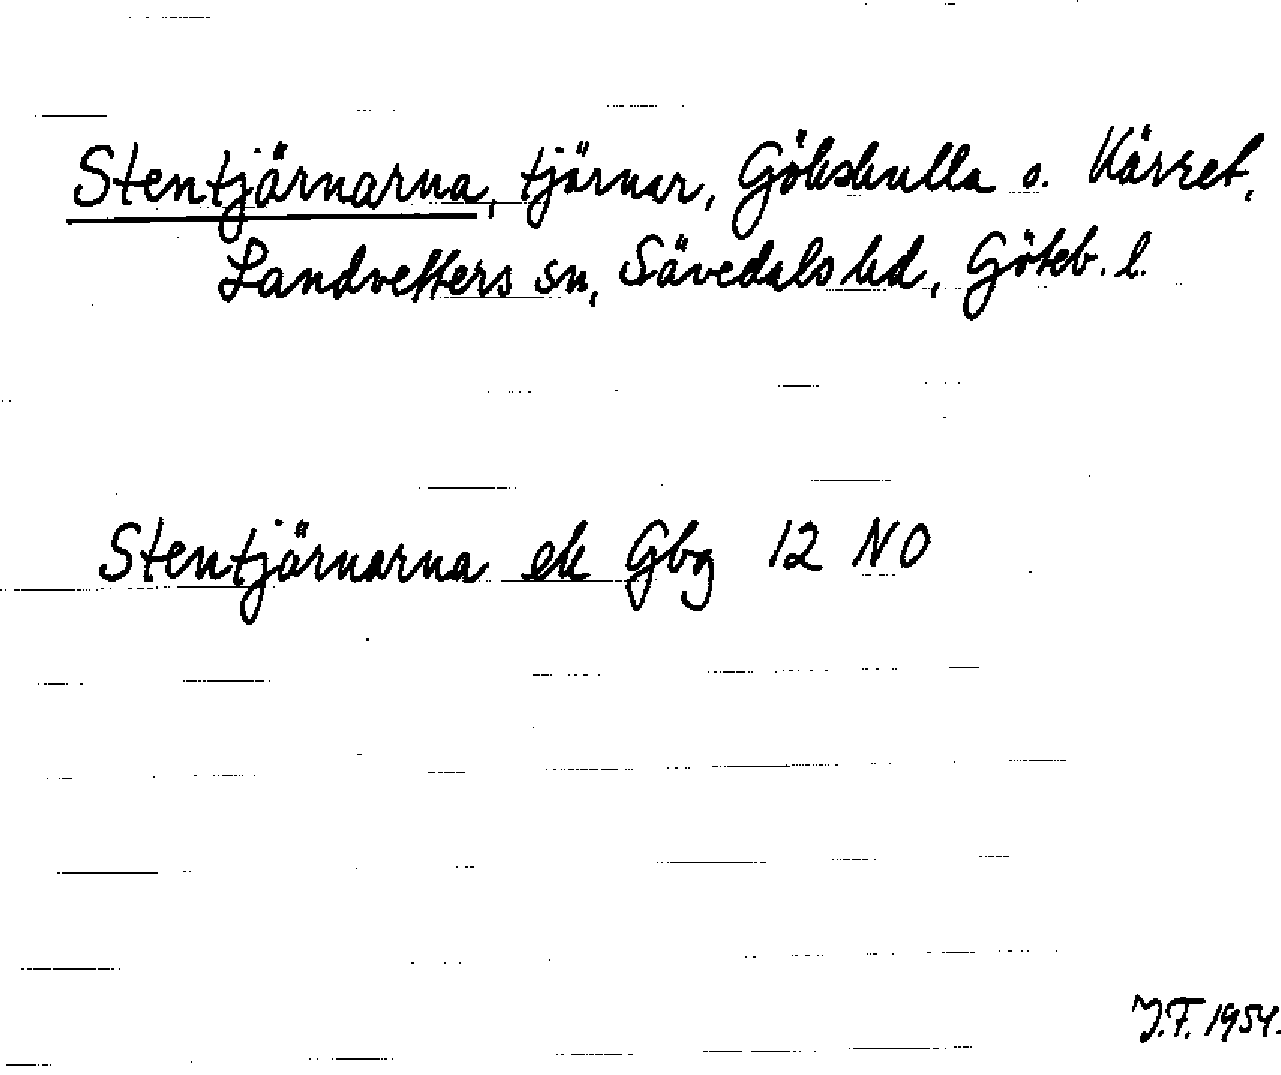 Stentjärnarna, tjärnar, Gökskulla o. Kärret,
Landvetters sn, Sävedals hd, Göteb. l.
Stentjärnarna ek Gbg 12 NO
J.F. 1954.